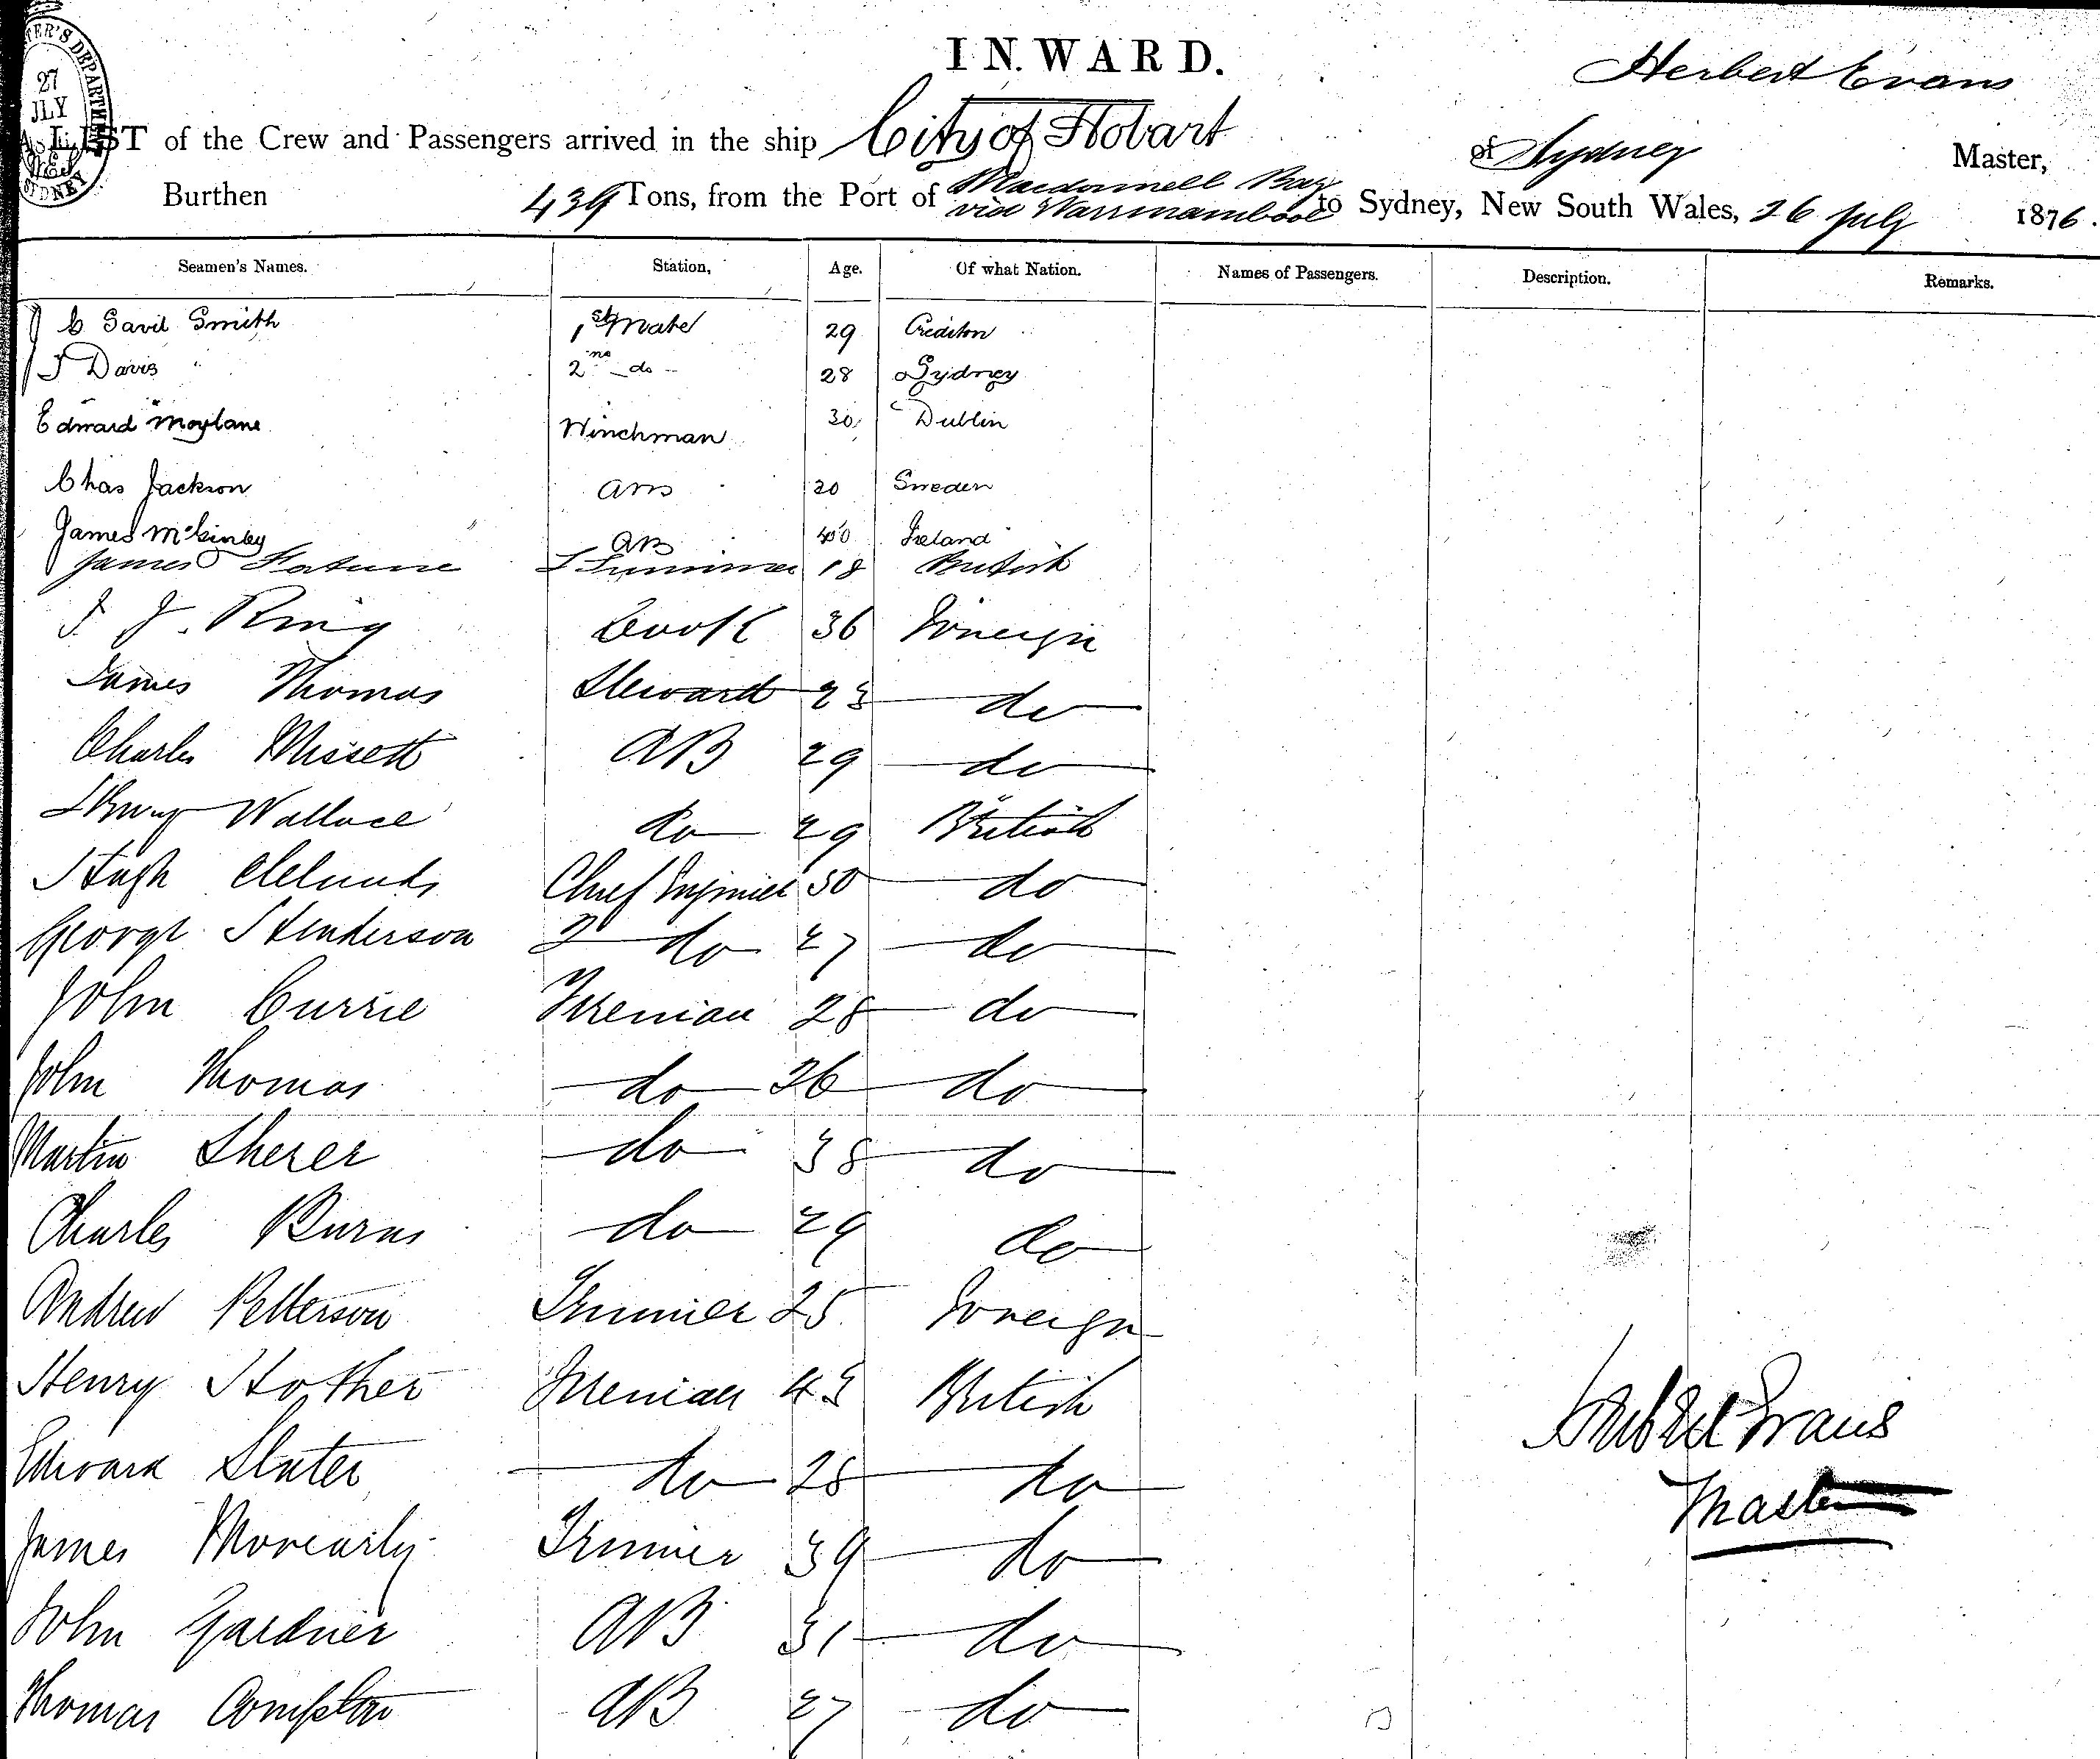 27
JLY
SYDNEY
INWARD.
Herbert Evans
A LIST of the Crew and Passengers arrived in the ship City of Hobart of Sydney Master,
Burthen 439 Tons, from the Port of Macdonnell Bay via Warrnambool to Sydney, New South Wales, 26 July 1876.
Seamen's Names. Station, Age. Of what Nation. Names of Passengers. Description. Remarks.
C Savil Smith 1st Mate 29 Crediton
J Davis 2nd do 28 Sydney
Edward Moylane Winchman 30 Dublin
Chas Jackson AB 20 Sweden
James McGinley AB 40 Ireland
James Fortune Trimmer 18 British
J. Ring Cook 36 Foreign
James Thomas Steward 23 do
Charles Missett AB 29 do
Henry Wallace do 29 British
Hugh Chief Engineer 50 do
George Henderson 2 do 27 do
John Currie Fireman 28 do
John Thomas do 26 do
Martin Sherer do 38 do
Charles Burns do 29 do
Andrew Petterson Trimmer 25 Foreign
Henry Hother Fireman 43 British
Edward Slater do 28 do
James Moriarty Trimmer 39 do
John Gardner AB 31 do
Thomas Compton AB 27 do
Herbert Evans
Master